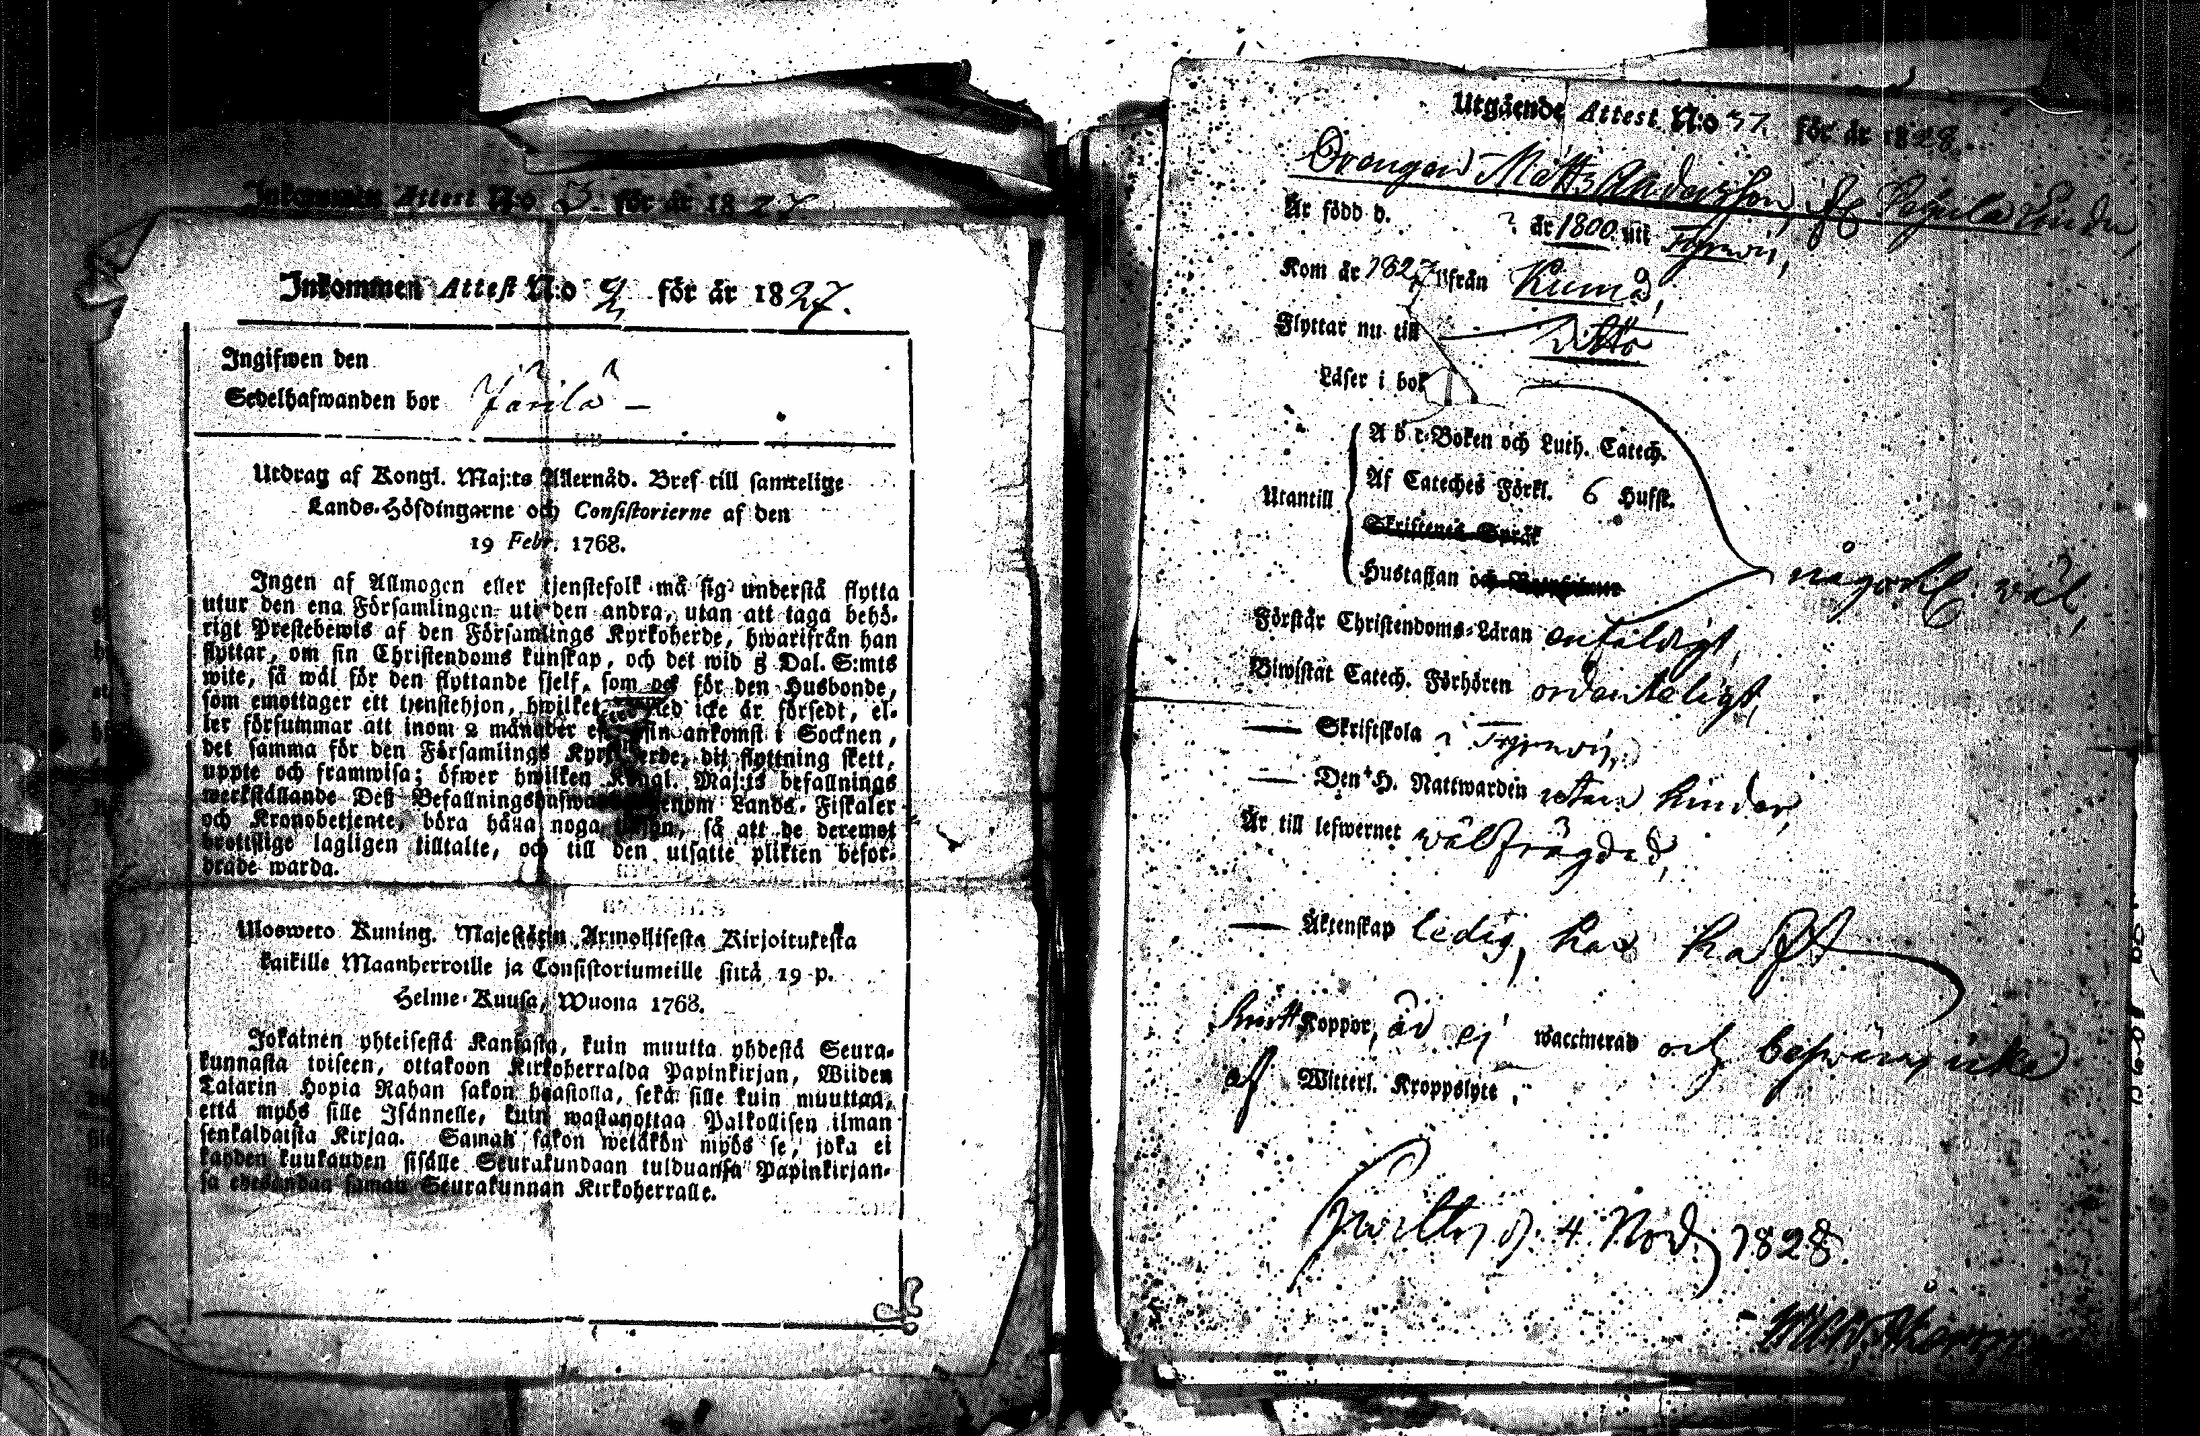 Inkommen Attest N:o 3. för år 1827.
Inkommen Attest N:o 2, för år 1827.
Ingifwen den
Sedelhafwanden bor
Utdrag af Kongl. Maj:ts Allernåd. Bref till samtelige
Lands-Höfdingarne och Consistorierne af den
19 Febr. 1768.
Ingen af Allmogen eller tjenstefolk må sig understå flytta
utur den ena Församlingen uti den andra, utan att taga behö-
rigt Prestebewis af den Församlings Kyrkoherde, hwarifrån han
flyttar, om sin Christendoms kunskap, och det wid 5 Dal. S:mts
wite, så wäl för den flyttande sjelf, som ock för den Husbonde,
som emottager ett tjenstehjon, hwilket icke är försedt, el-
ler försummar att inom 2 månader sin ankomst i Socknen,
det samma för den Församlings Kyrkoherde, dit flyttning skett,
uppte och framwisa; öfwer hwilken Kongl. Maj:ts befallnings
werkställande Deß Befallningshafwande genom Lands-Fiskaler
och Kronobetjente, böra hålla noga så att de deremot
brottslige lagligen tilltalte, och till den utsatte plikten befor-
drade warda.
Ulosweto Kuning. Majestätin Armollisesta Kirjoituksesta
kaikille Maanherroille ja Consistoriumeille siitä 19 p.
Helme-Kuusa, Wuona 1768.
Jokainen yhteisestä Kansasta, kuin muutta yhdestä Seura-
kunnasta toiseen, ottakoon Kirkoherralda Papinkirjan, Wiiden
Talarin Hopia Rahan sakon haastolla, sekä sille kuin muuttaa,
että myös sille Isännelle, kuin wastanottaa Palkollisen ilman
senkaldaista Kirjaa. Saman sakon wetäkön myös se, joka ei
kahden kuukauden sisälle Seurakundaan tulduansa Papinkirjan-
sa edesandaa saman Seurakunnan Kirkoherralle.
Utgående Attest N:o 37. för år 1828.
Drengen Matts Andersson,
Är född d. ? år 1800 uti Tyrwis,
Kom år 1827 ifrån Kumo,
Flyttar nu till Ditto
Läser i bok
A b c-Boken och Luth. Catech.
Af Cateches Förkl. 6 Hufst.
Utantill
Skriftenes Språk
Hustaflan och
någorl. wäl,
Förstår Christendoms-Läran enfaldigt,
Biwistat Catech. Förhören ordenteligt,
— Skriftskola i Tyrwis,
— Den H. Nattwarden utan hinder,
Är till lefwernet wälfrägdad,
— Äktenskap ledig, har haft
Koppor, är ej waccinerad och beswäras icke
af Witterl. Kroppslyte.
d. 4 Nov. 1828.